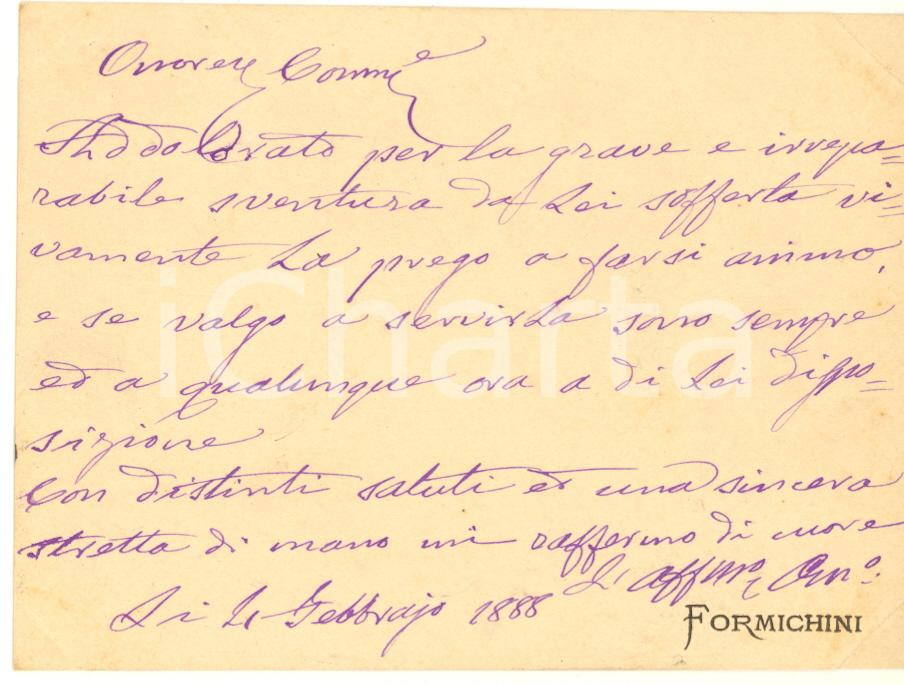 Onorev Comme
Addolorato per la grave e irrepa=
rabile sventura da Lei sofferta vi=
vamente La prego a farsi animo,
e se valgo a servirLa sono sempre
ed a qualunque ora a di Lei dispo=
sizione
Con distinti saluti ed una sincera
stretta di mano mi raffermo di cuore
affmo Amo.
Li 4 Febbrajo 1888
FORMICHINI
iCharta